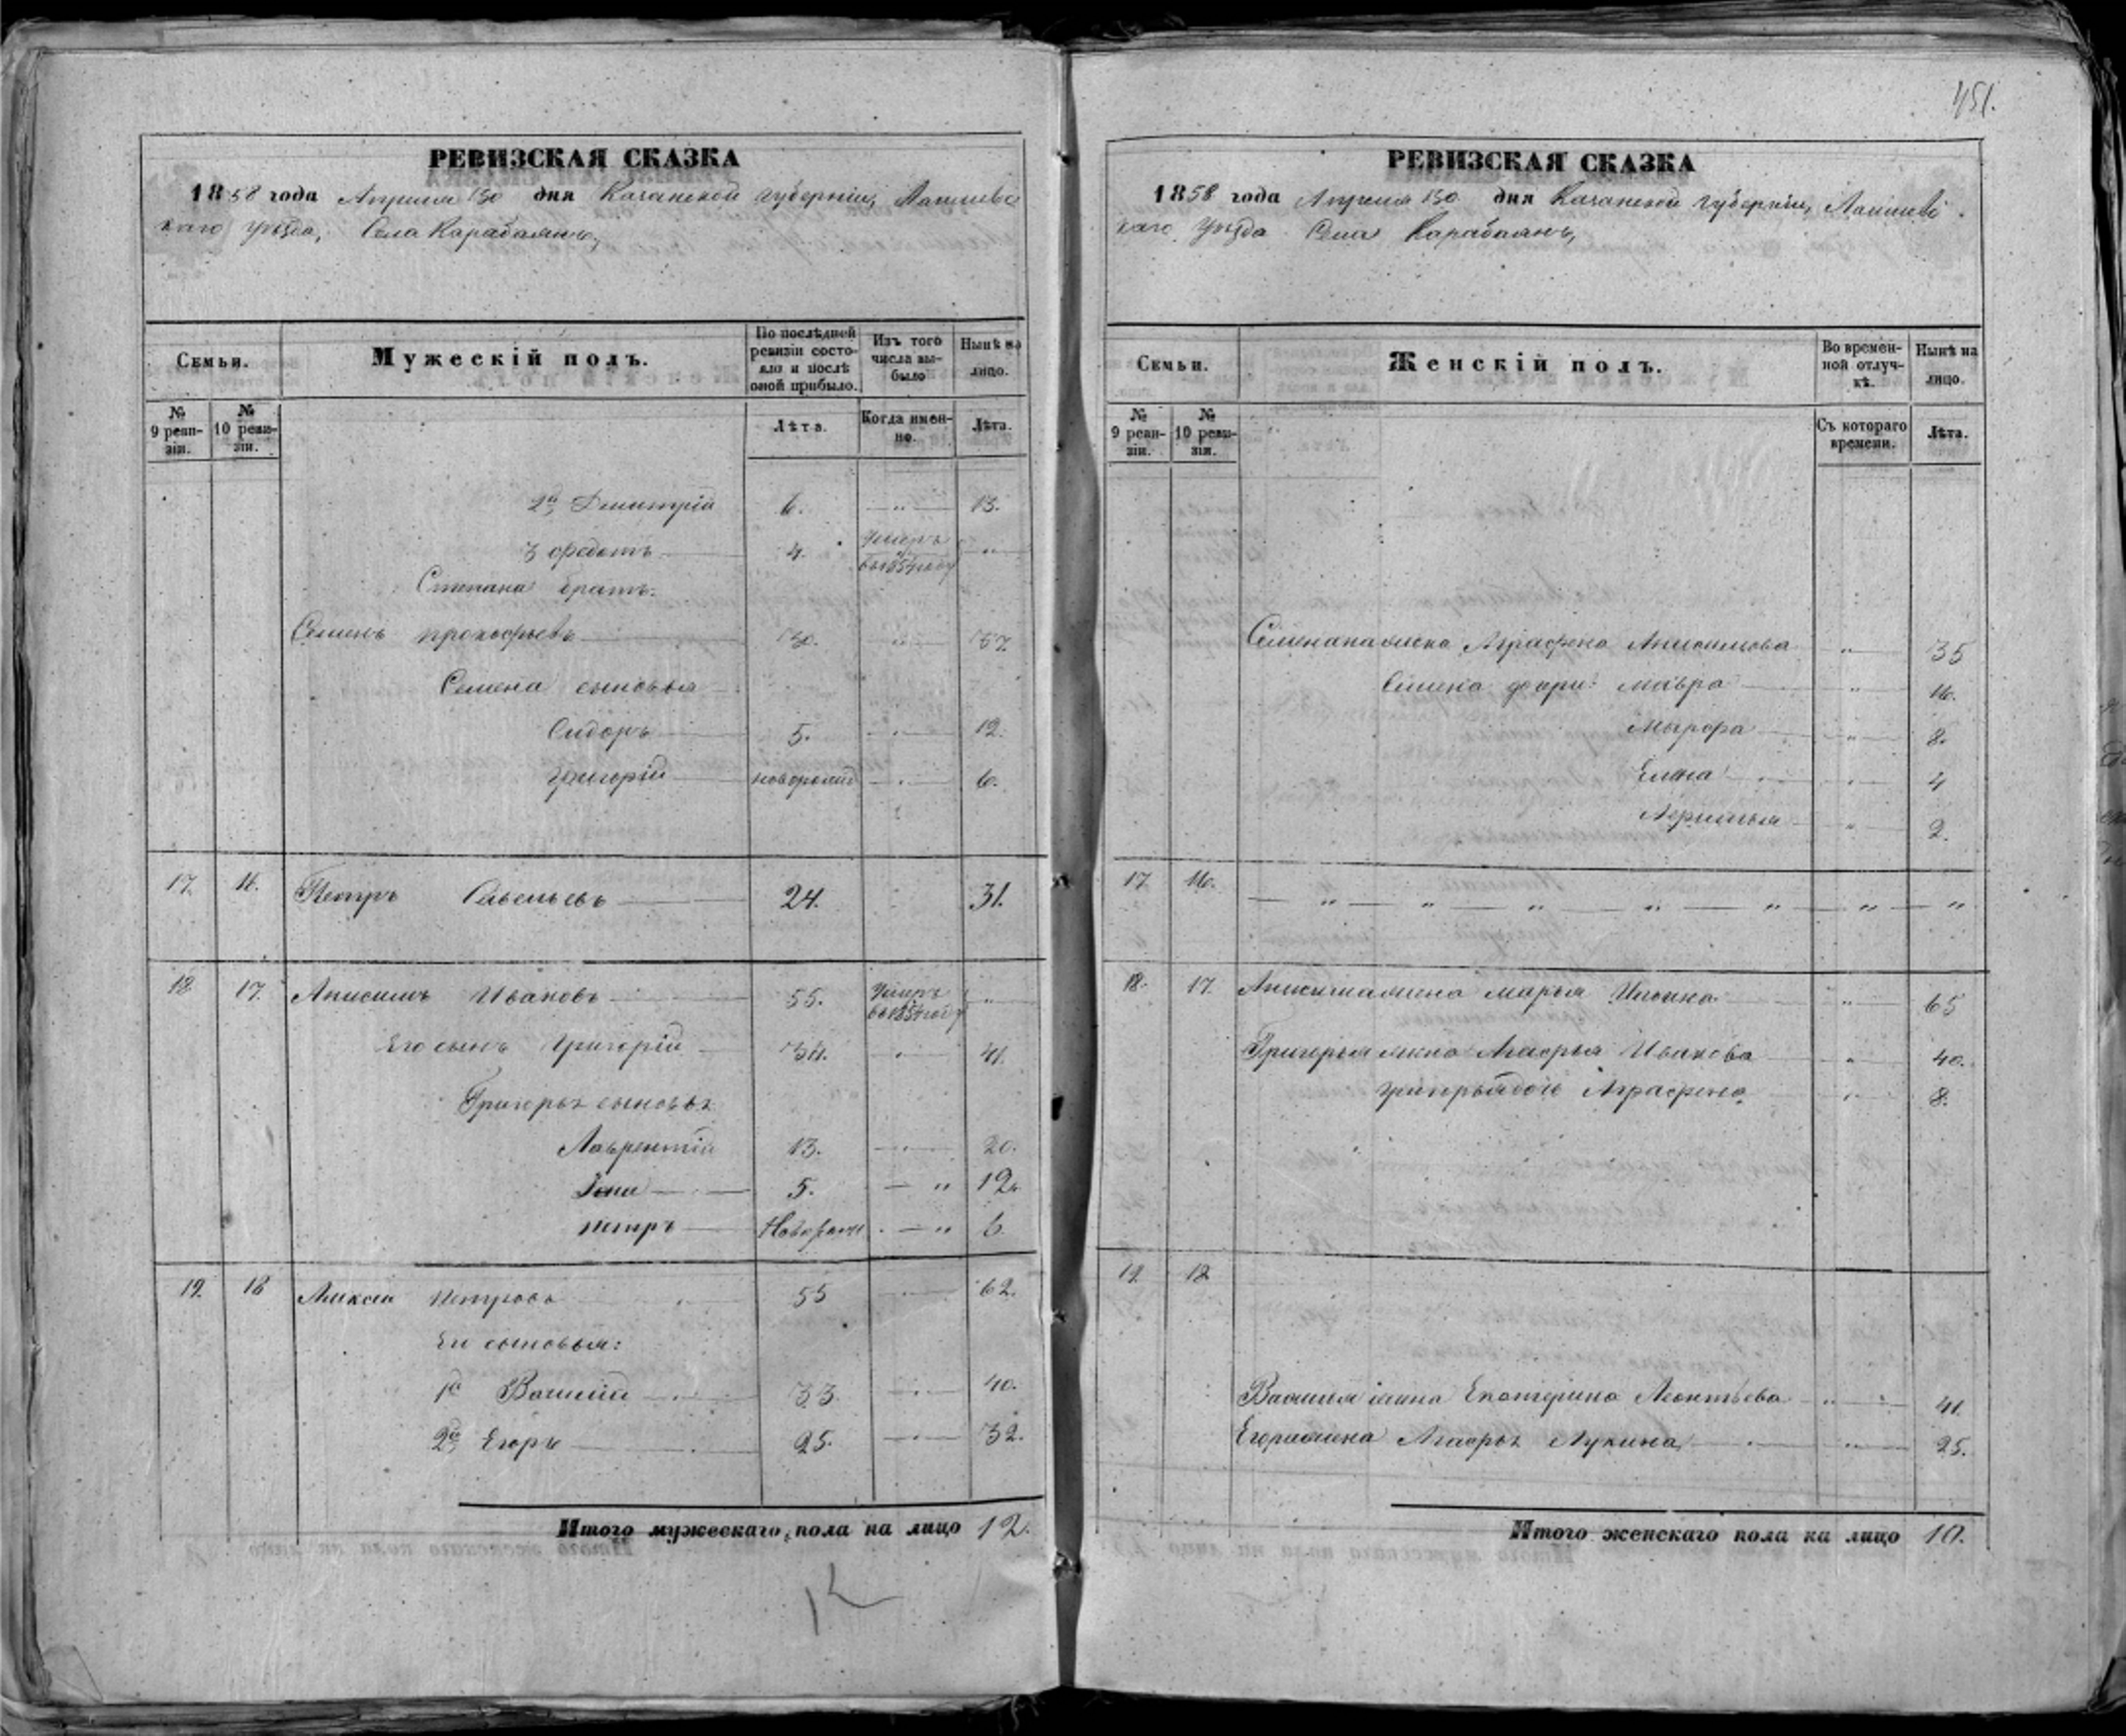 451.
РЕВИЗСКАЯ СКАЗКА
1858 года Апреля 30 дня Казанской губерніи, Лаишевс
каго уѣзда, Села Карабаянъ,
Семьи.
Мужескій полъ.
По послѣдней ревизіи состо-
яло и послѣ оной прибыло.
Изъ того числа вы-
было
Нынѣ на лицо.
№ 9 реви-
зіи.
№ 10 реви-
зіи.
Лѣта.
Когда имен-
но.
Лѣта.
2й Дмитрій 6. — " — 13.
3 Федотъ 4. Умеръ въ 1854 году — " —
Степана братъ:
Семенъ Прокофьевъ 30. " 37
Семена сыновья
Сидоръ 5. 12.
Григорій новорожд 6.
17. 16. Петръ Савельевъ 24. 31.
18 17. Анисимъ Ивановъ 55. Умеръ въ 1854 году "
Его сынъ Григорій 34. 41.
Григорья сыновья
Лаврентій 13. 20.
Іона 5. — " 12.
Петръ Новорожд — " 6
19. 18 Алексей Петровъ 55 62.
Ег сыновья:
1й Василій 33. 40.
2й Егоръ 25. 32.
Итого мужескаго пола на лицо 12.
12
РЕВИЗСКАЯ СКАЗКА
1858 года Апреля 30 дня Казанской губерніи, Лаишевс
каго уѣзда Села Карабаянъ,
Семьи.
Женскій полъ.
Во времен-
ной отлуч-
кѣ.
Нынѣ на лицо.
№ 9 реви-
зіи.
№ 10 реви-
зіи.
Съ котораго времени.
Лѣта.
Семена жена Аграфена Анисимова " 35
Семена дочри: Мавра " 16.
Марфа " 8.
Елена " 4
" 2.
17 16. — " — " — " — " — " — " — "
18. 17. Анисима жена Марья " 65
Григорья жена Агафья Иванова " 40.
Григорья дочь Аграфена " 8.
19. 18
Василья жена Екатерина Леонтьева " 41.
Егора жена Агафья Лукина " 25.
Итого женскаго пола на лицо 10.